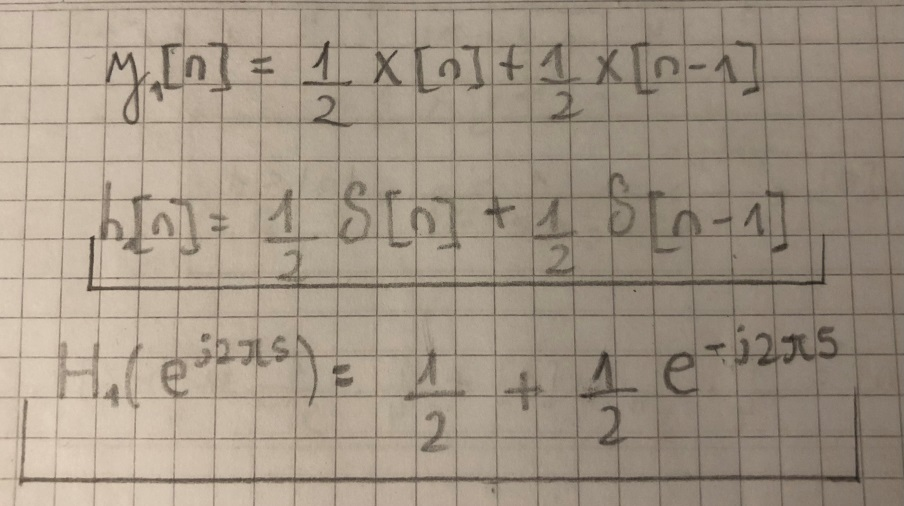 y₁[n] = 1/2 x[n] + 1/2 x[n-1]
h[n] = 1/2 δ[n] + 1/2 δ[n-1]
H₁(e^{j2πs}) = 1/2 + 1/2 e^{-j2πs}